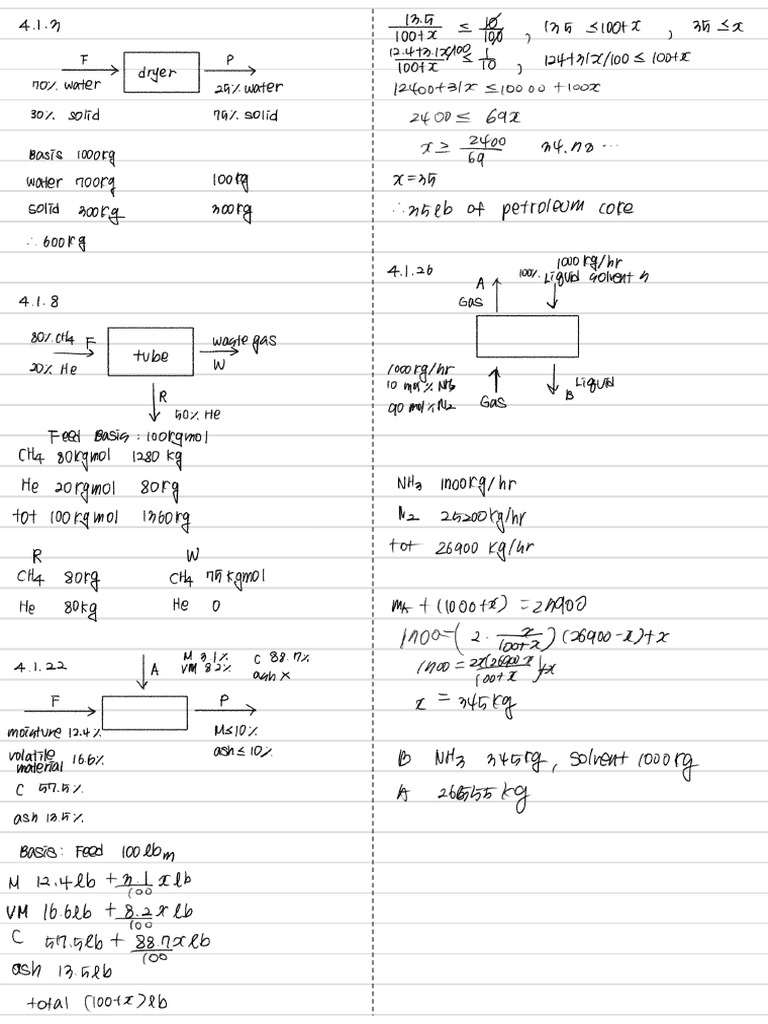 4.1.3
F
P
dryer
70% water
25% water
30% solid
75% solid
Basis 1000kg
water 700kg 100kg
solid 300kg 300kg
∴ 600kg
4.1.8
80% CH4 F
waste gas
tube
W
20% He
R
50% He
Feed Basis : 100kgmol
CH4 80kgmol 1280 kg
He 20kgmol 80kg
tot 100kgmol 1360kg
R W
CH4 80kg CH4 75 kgmol
He 80kg He 0
4.1.22
A
M 3.1% C 88.7%
VM 8.2% ash X
F
P
moisture 12.4%
M≤10%
volatile material 16.6%
ash≤10%
C 57.5%
ash 13.5%
Basis: Feed 100lbm
M 12.4lb + 3.1/100 x lb
VM 16.6lb + 8.2/100 x lb
C 57.5lb + 88.7/100 x lb
ash 13.5lb
total (100+x) lb
13.5/100+x ≤ 10/100 , 135 ≤100+x , 35 ≤x
12.4+3.1x/100/100+x ≤ 1/10 , 124+31x/100 ≤ 100+x
12400+31x ≤10000+100x
2400 ≤ 69x
x ≥ 2400/69 34.78 ⋯
x=35
∴35lb of petroleum core
4.1.26
1000kg/hr
A
100% Liquid solvent
Gas
1000kg/hr
10 mol% NH3
90 mol% N2
Gas
Liquid
B
NH3 1700kg/hr
N2 25200kg/hr
tot 26900 kg/hr
mA + (1000+x) = 27900
1700=(2· x/100+x)(26900-x)+x
1700 = 2x(26900-x)/100+x +x
x = 345kg
B NH3 345kg, solvent 1000kg
A 26555kg